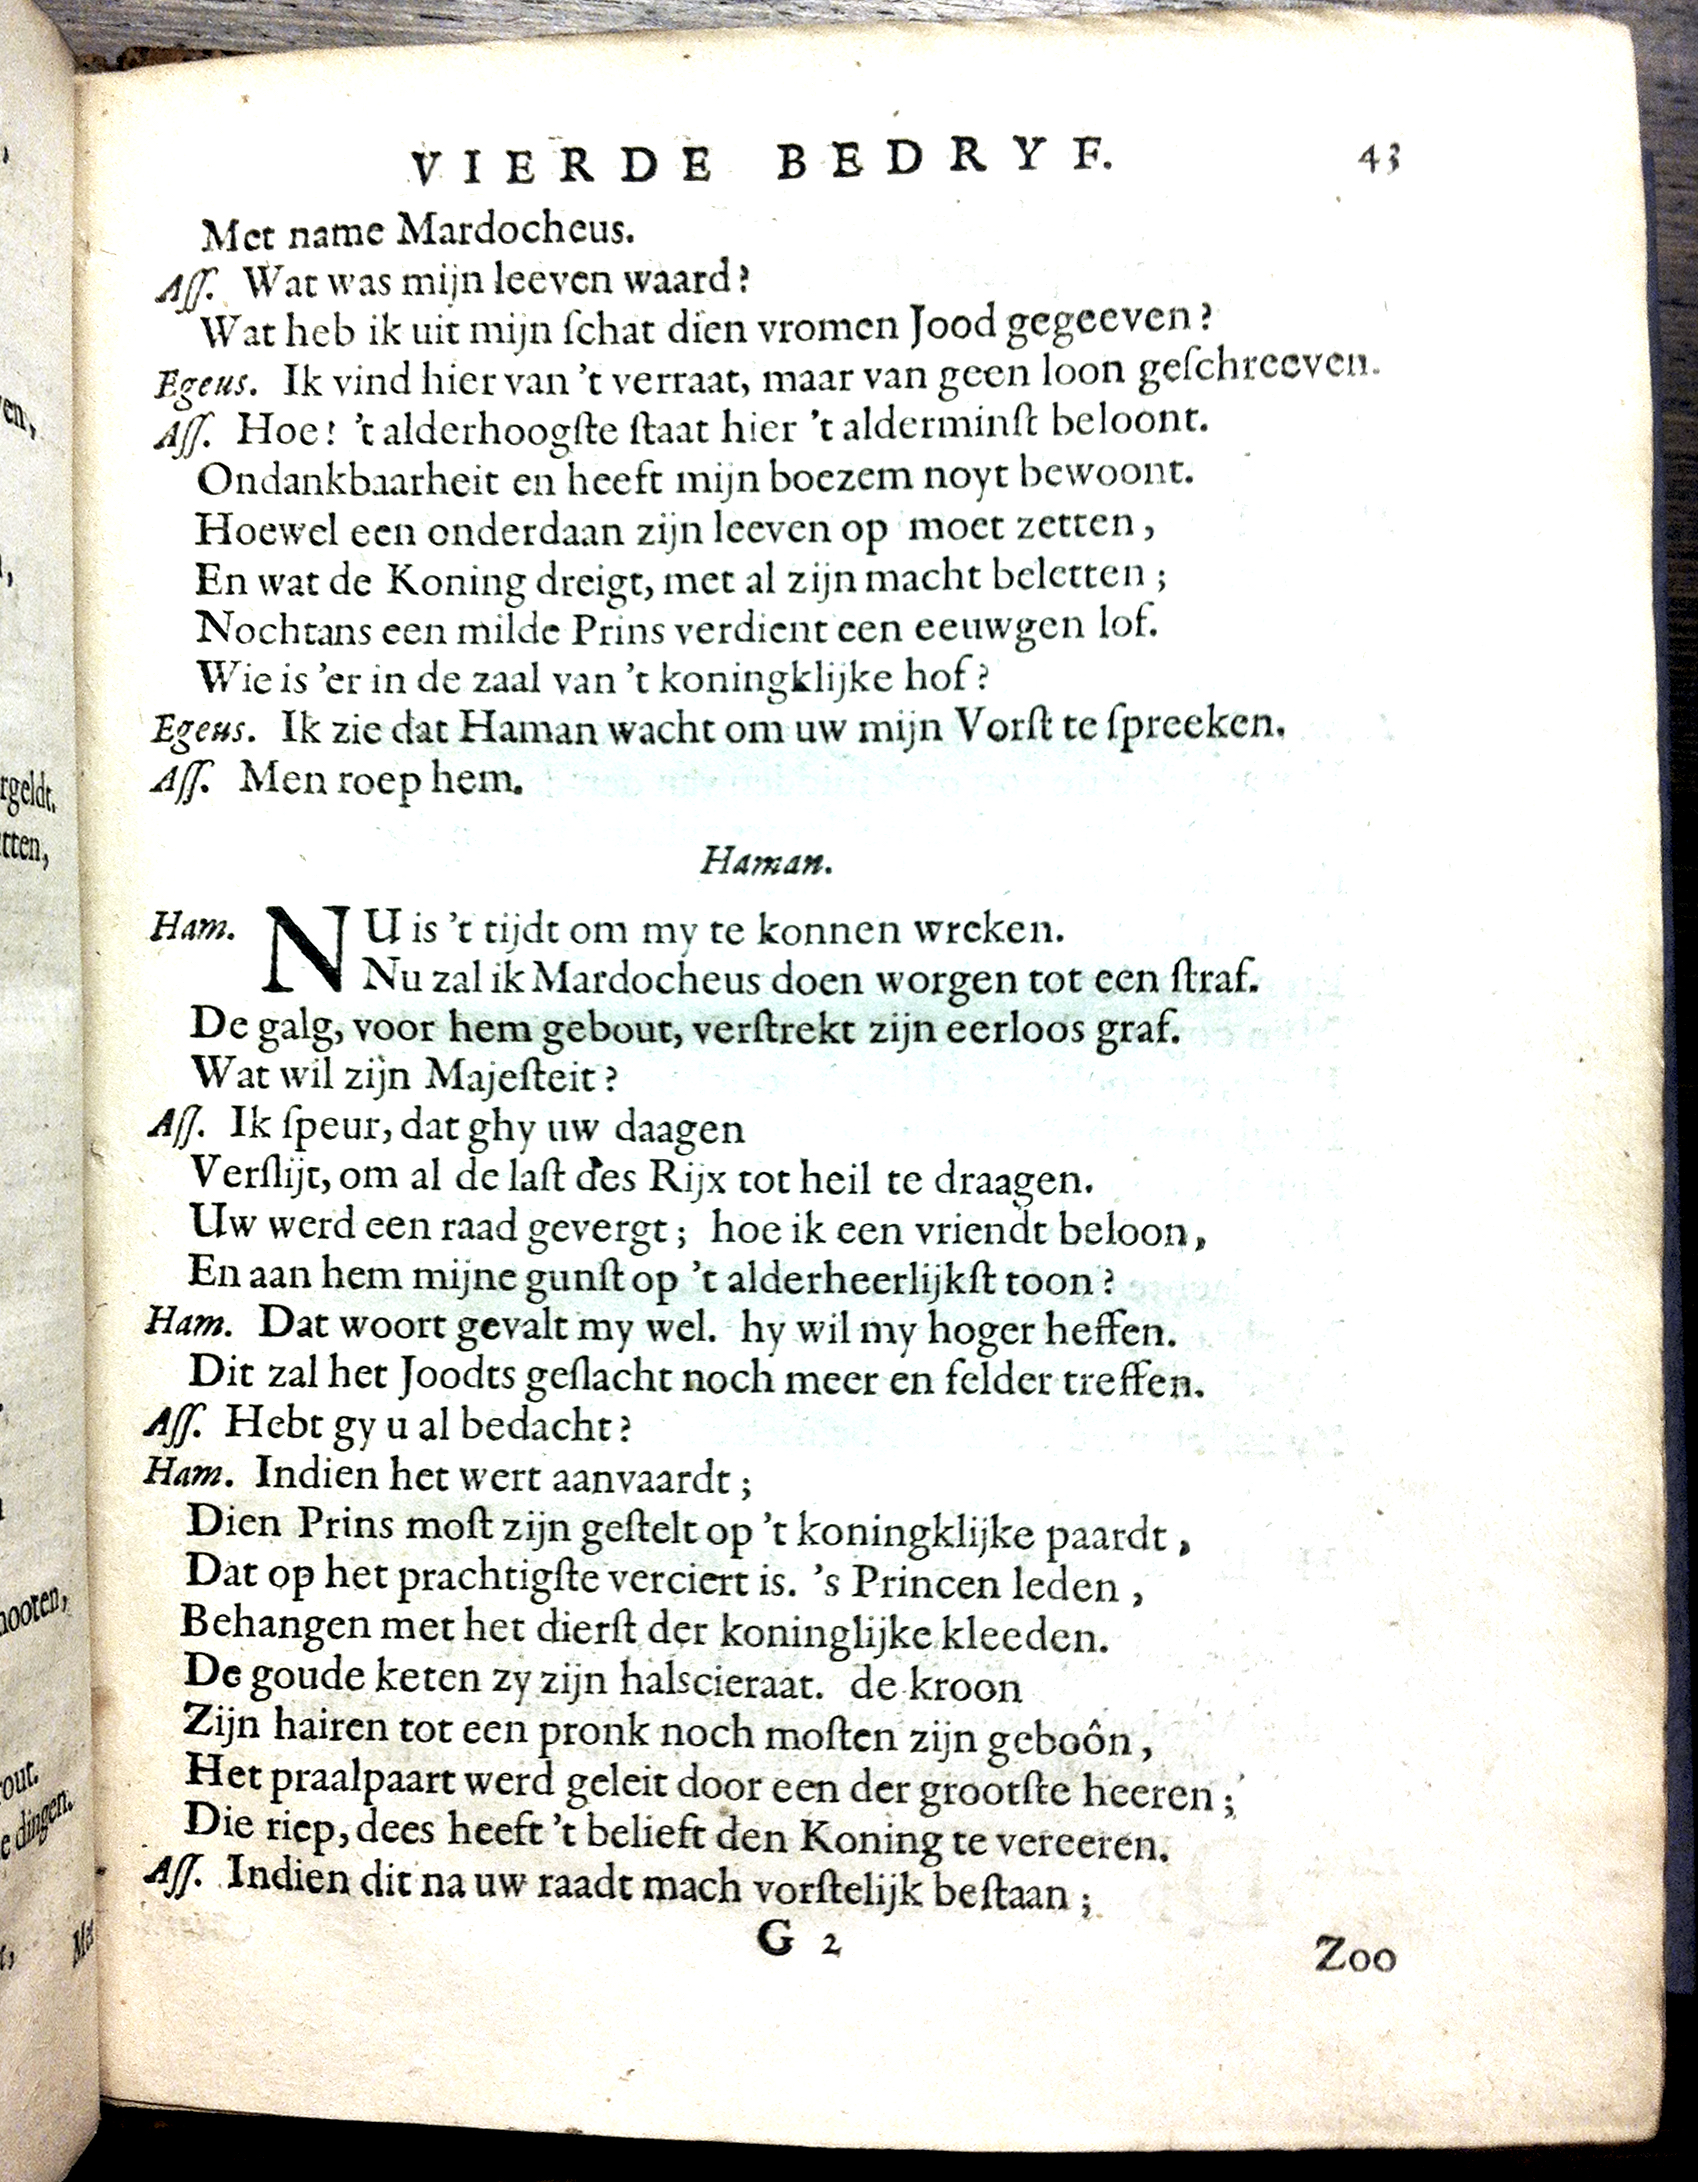 VIERDE BEDRYF. 43
Met name Mardocheus.
Aſſ. Wat was mijn leeven waard?
Wat heb ik uit mijn ſchat dien vromen Jood gegeeven?
Egeus. Ik vind hier van 't verraat, maar van geen loon geſchreeven.
Aſſ. Hoe! 't alderhoogſte ſtaat hier 't alderminſt beloont.
Ondankbaarheit en heeft mijn boezem noyt bewoont.
Hoewel een onderdaan zijn leeven op moet zetten,
En wat de Koning dreigt, met al zijn macht beletten;
Nochtans een milde Prins verdient een eeuwgen lof.
Wie is 'er in de zaal van 't koningklijke hof?
Egeus. Ik zie dat Haman wacht om uw mijn Vorſt te ſpreeken.
Aſſ. Men roep hem.
Haman.
Ham. NU is 't tijdt om my te konnen wreken.
Nu zal ik Mardocheus doen worgen tot een ſtraf.
De galg, voor hem gebout, verſtrekt zijn eerloos graf.
Wat wil zijn Majeſteit?
Aſſ. Ik ſpeur, dat ghy uw daagen
Verſlijt, om al de laſt des Rijx tot heil te draagen.
Uw werd een raad gevergt; hoe ik een vriendt beloon,
En aan hem mijne gunſt op 't alderheerlijkſt toon?
Ham. Dat woort gevalt my wel. hy wil my hoger heffen.
Dit zal het Joodts geſlacht noch meer en felder treffen.
Aſſ. Hebt gy u al bedacht?
Ham. Indien het wert aanvaardt;
Dien Prins moſt zijn geſtelt op 't koningklijke paardt,
Dat op het prachtigſte verciert is. 's Princen leden,
Behangen met het dierſt der koninglijke kleeden.
De goude keten zy zijn halscieraat. de kroon
Zijn hairen tot een pronk noch moſten zijn geboôn,
Het praalpaart werd geleit door een der grootſte heeren;
Die riep, dees heeft 't belieft den Koning te vereeren.
Aſſ. Indien dit na uw raadt mach vorſtelijk beſtaan;
G 2 Zoo